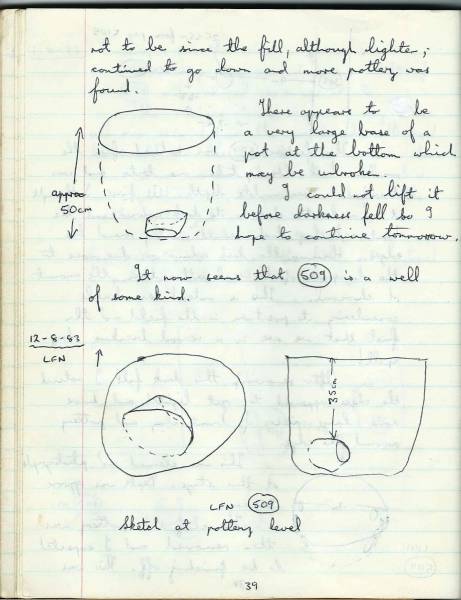 not to be since the fill, although lighter,
continued to go down and more pottery was
found.
There appears to be
a very large base of a
pot at the bottom which
may be unbroken.
I could not lift it
before darkness fell so I
hope to continue tomorrow.
approx
50cm
It now seems that 509 is a well
of some kind.
12-8-83
LFN
35cm
LFN 509
Sketch at pottery level
39